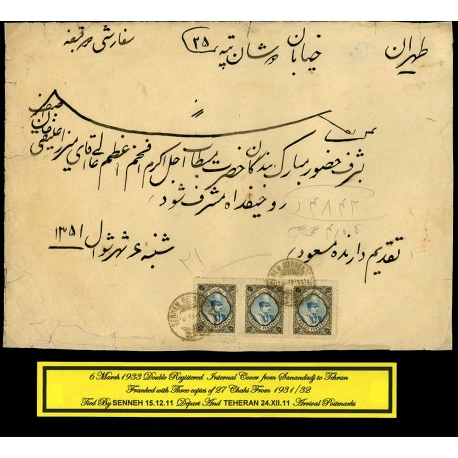 طهران
خیابان
دوشان تپه
۲۵
سفارشی دو قبضه
بشرف حضور مبارک بندگان حضرت مستطاب اجل اکرم افخم اعظم عالی آقای میرزا علینقی خان
روحیفداه مشرف شود)
شنبه ۶ شهر شوال ۱۳۵۱
تقدیم دارنده مسعود)
6 March 1933 Double Registered Internal Cover from Sanandadj to Tehran
Franked with Three copies of 27 Chahi From 1931/32
Tied By SENNEH 15.12.11 Depart And TEHERAN 24.XII.11 Arrival Postmarks